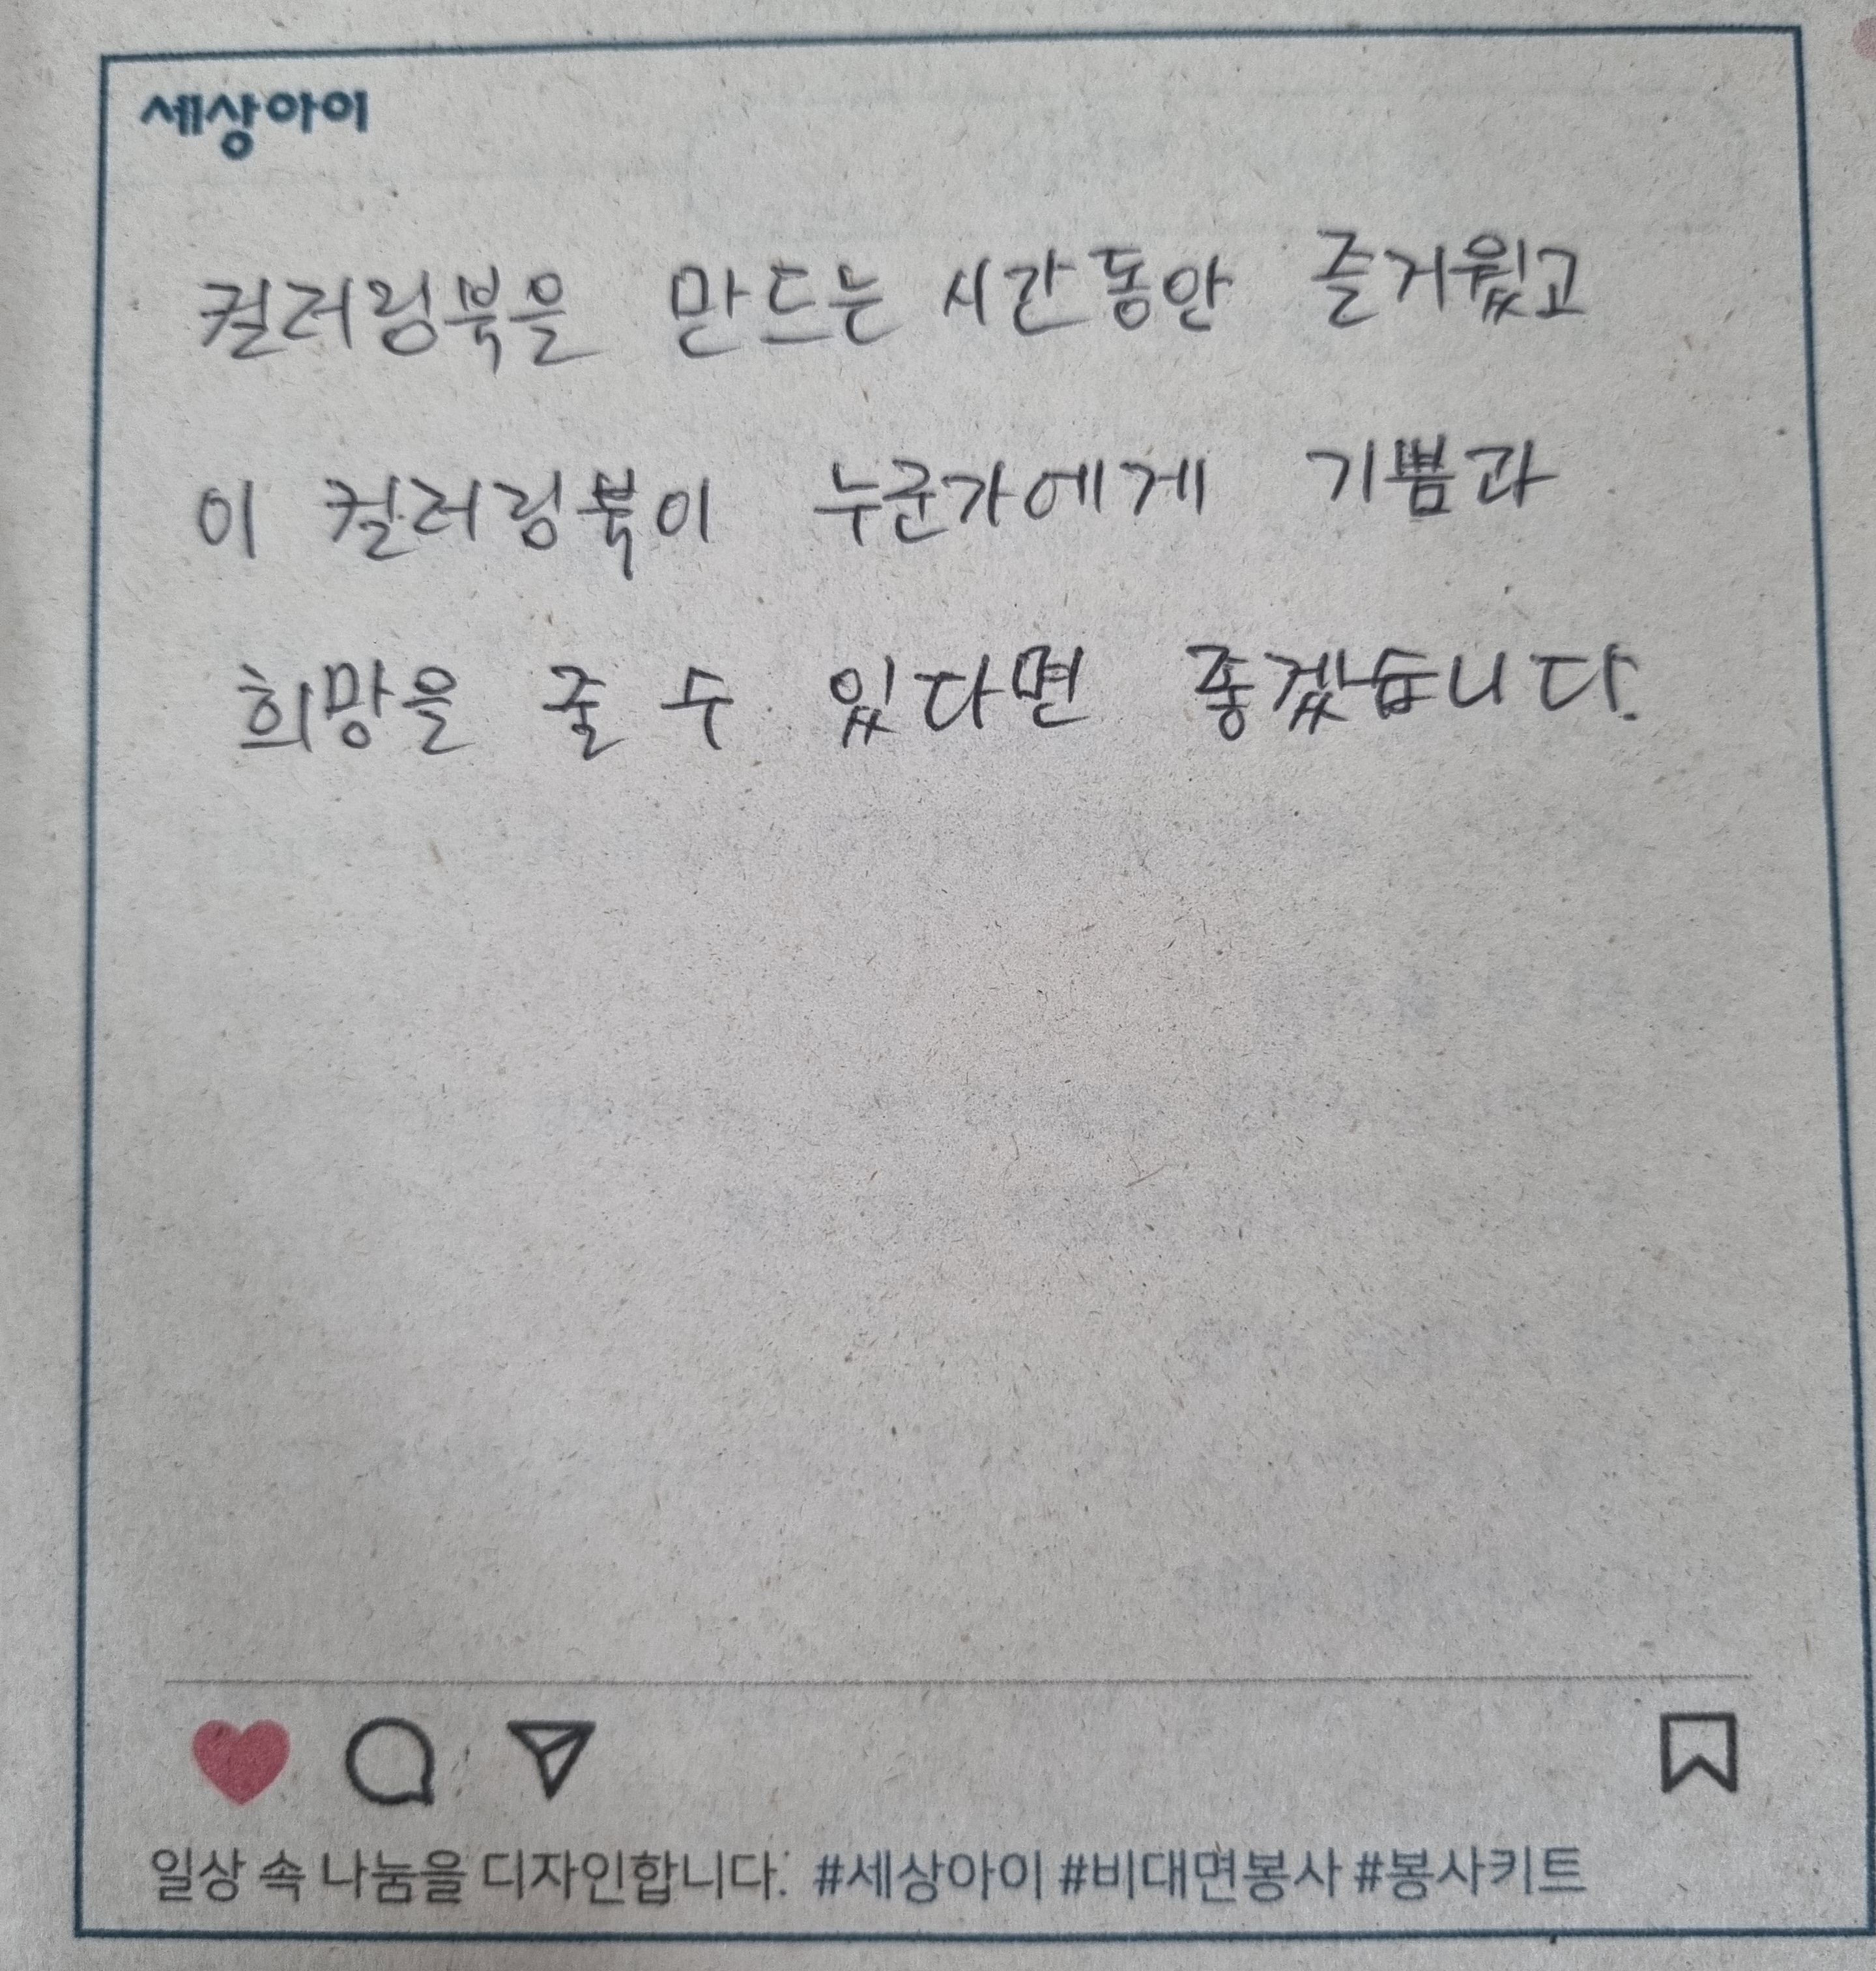 세상아이
컬러링북을 만드는 시간동안 즐거웠고
이 컬러링북이 누군가에게 기쁨과
희망을 줄 수 있다면 좋겠습니다.
일상 속 나눔을 디자인합니다. #세상아이 #비대면봉사 #봉사키트